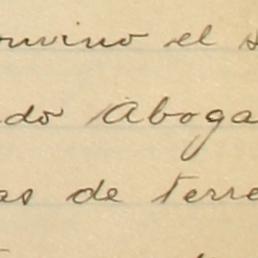 onvino el s
do Aboga
as de terre